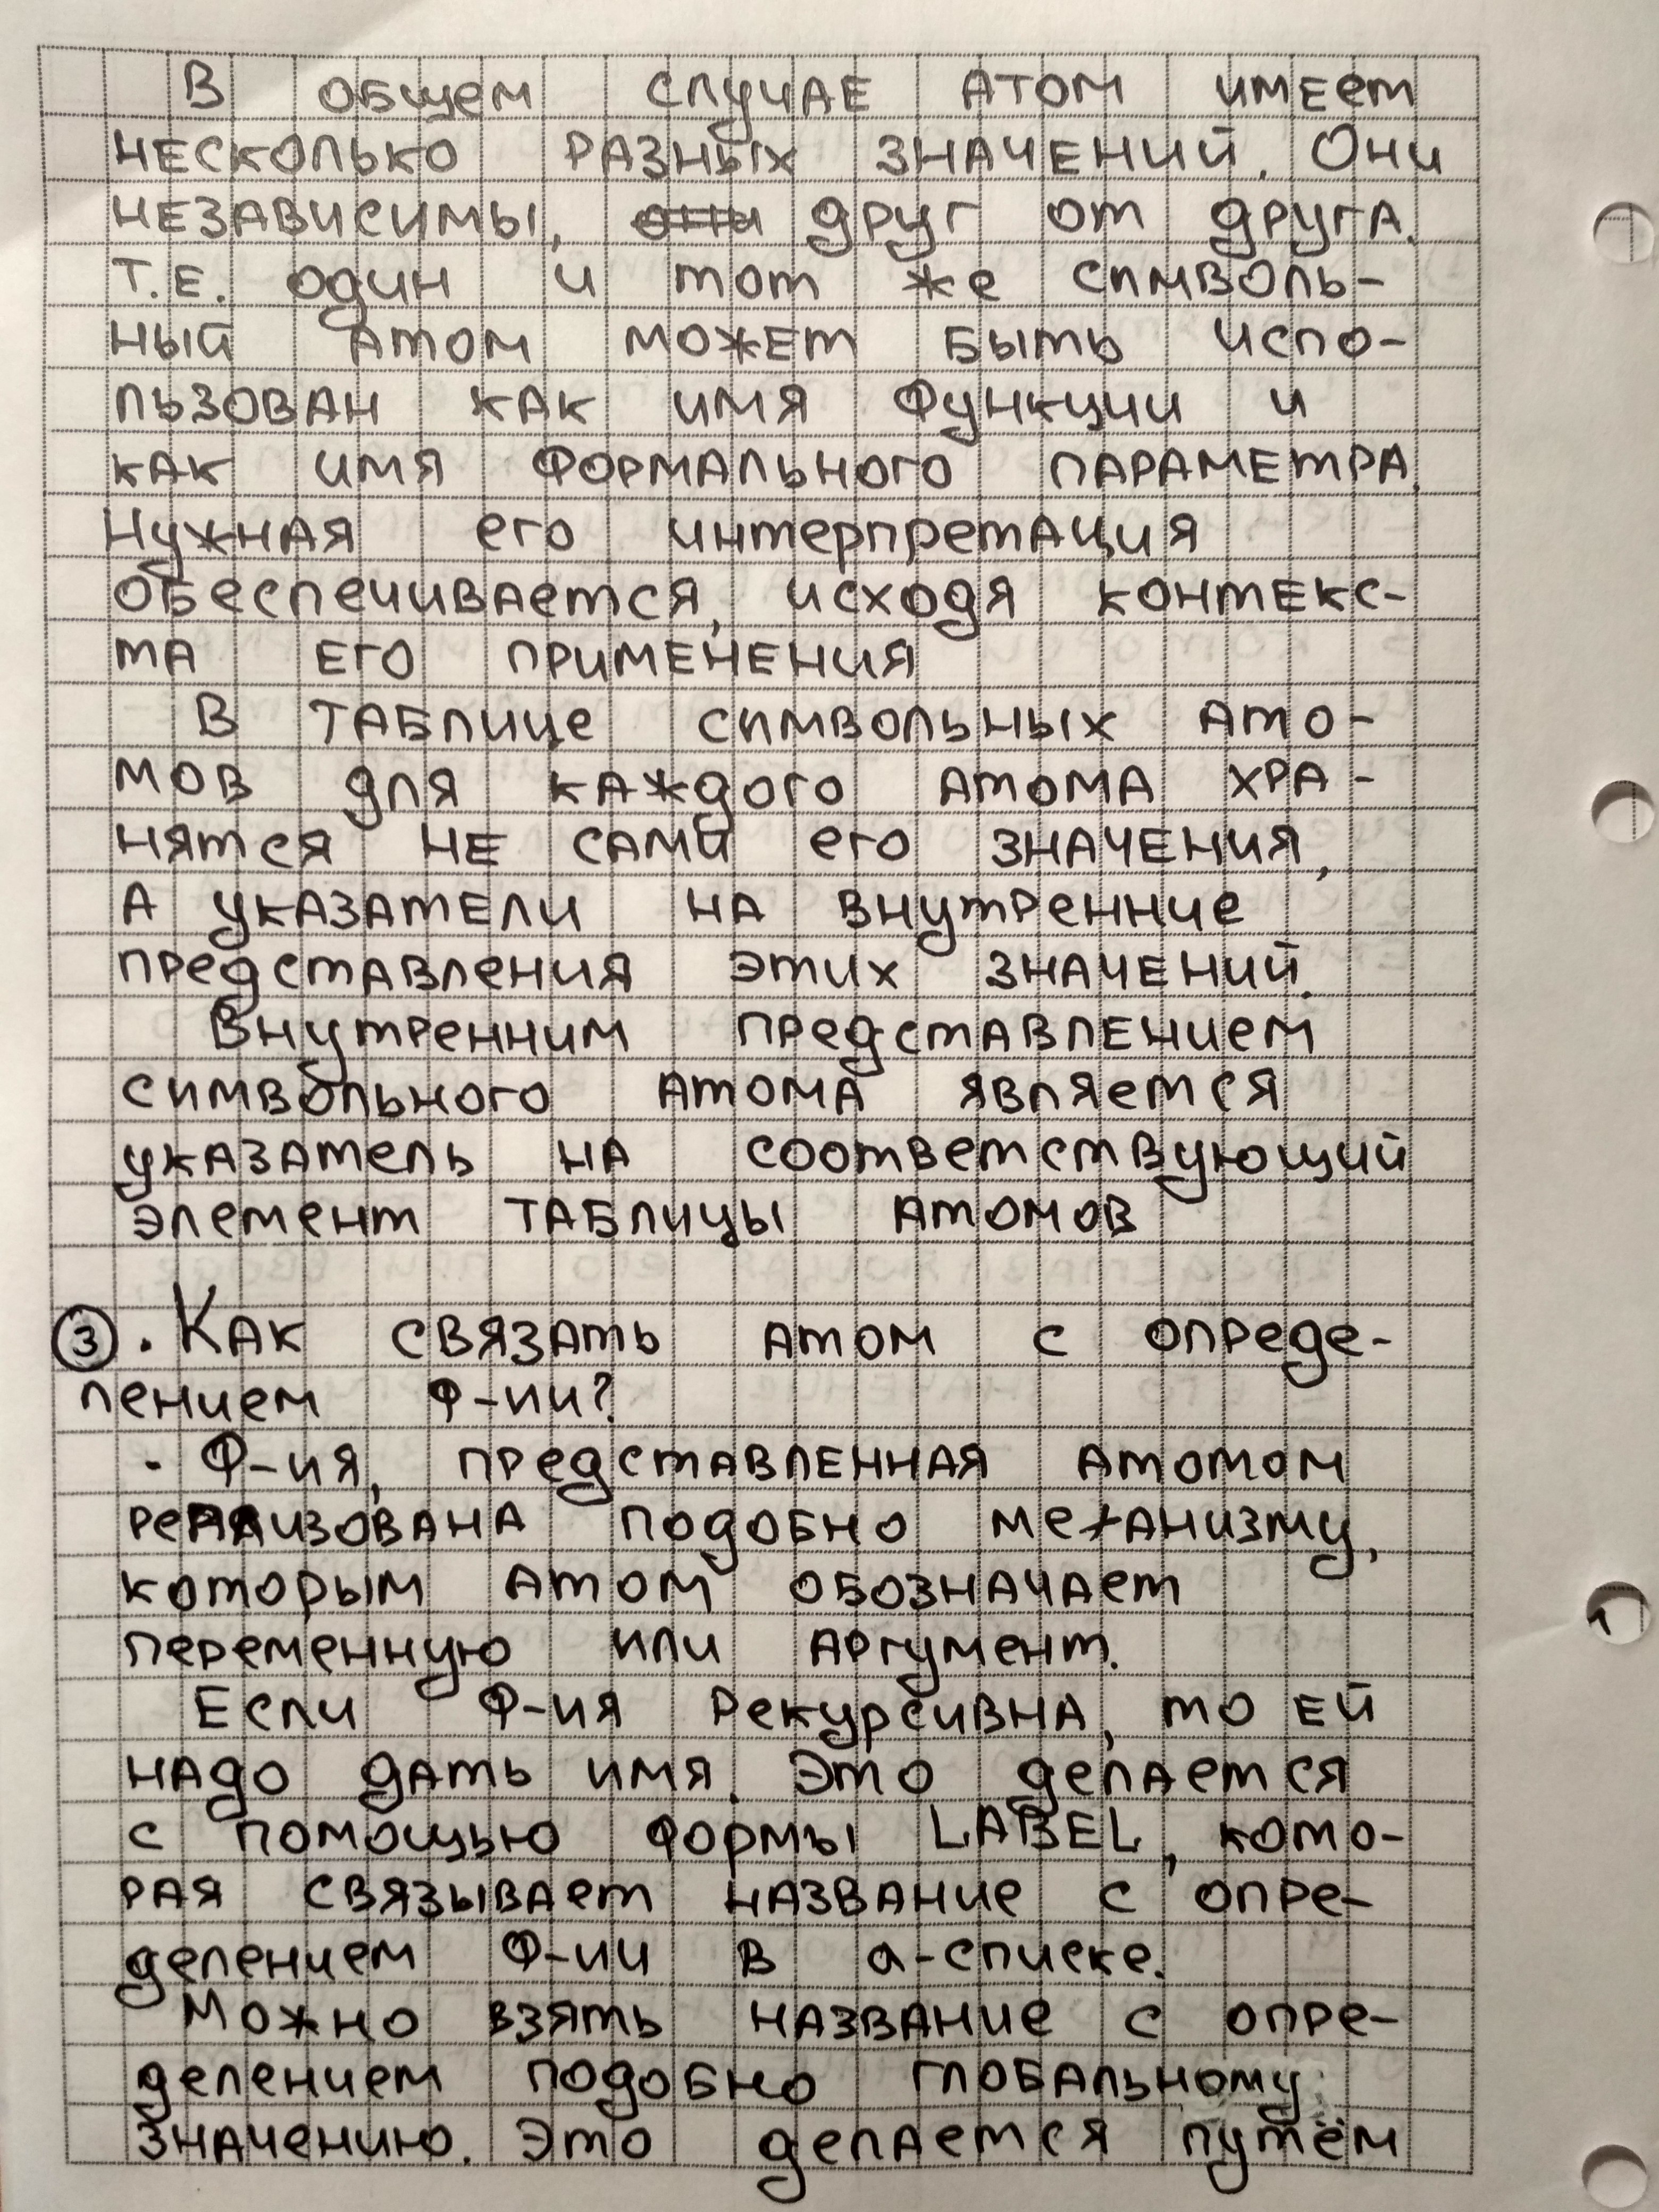 В общем случае атом имеет
несколько разных значений. Они
независимы, друг от друга.
Т.е. один и тот же символь-
ный атом может быть испо-
льзован как имя функции и
как имя формального параметра.
Нужная его интерпретация
обеспечивается, исходя контекс-
та его применения
В таблице символьных ато-
мов для каждого атома хра-
нятся не сами его значения,
а указатели на внутренние
представления этих значений.
Внутренним представлением
символьного атома является
указатель на соответствующий
элемент таблицы атомов
3. Как связать атом с опреде-
лением ф-ии?
- Ф-ия, представленная атомом
реализована подобно механизму,
которым атом обозначает
переменную или аргумент.
Если ф-ия рекурсивна, то ей
надо дать имя. Это делается
с помощью формы LABEL, кото-
рая связывает название с опре-
делением ф-ии в a-списке.
Можно взять название с опре-
делением подобно глобальному
значению. Это делается путём